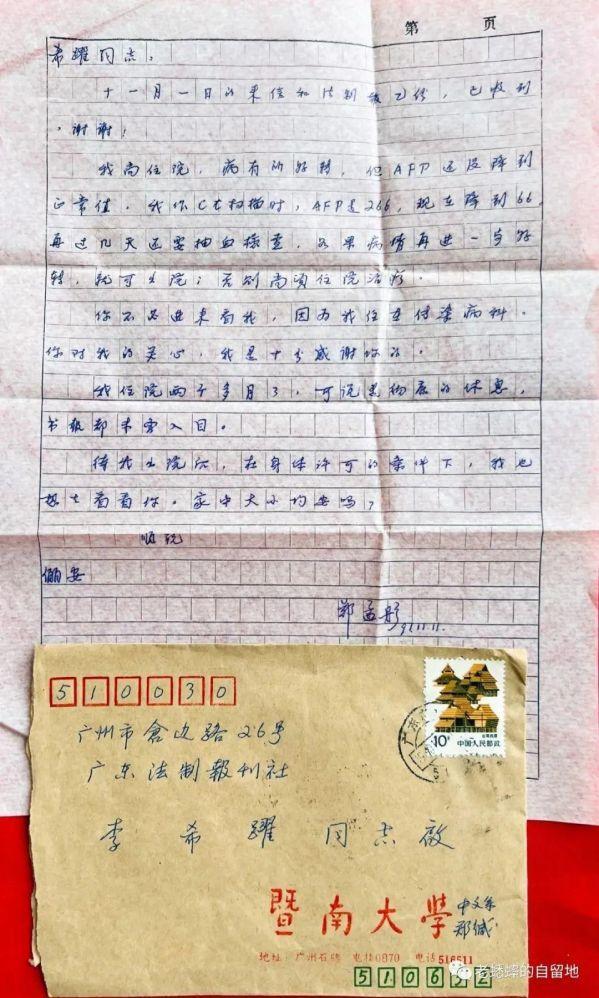 第 页
希跃同志:
十一月一日的来信和法制报已经,已收到
,谢谢!
我尚住院,病有所好转,但AFP还没降到
正常值。我作CT扫描时,AFP是266,现在降到66,
再过几天还要抽血检查,如果病情再进一步好
转,就可出院;否则尚须住院治疗。
你不必进来看我,因为我住在传染病科。
你对我的关心,我是十分感谢你的。
我住院两个多月了,可说是彻底的休息,
书报都未曾入目。
待我出院后,在身体许可的条件下,我也
想去看看你。家中大小均安吗?
顺祝
俪安
郑孟彤
91.11.11.
510030
10分
中国人民邮政
广州市仓边路26号
广东法制报刊社
李希跃同志启
暨南大学 中文系
郑缄
地址:广州石牌 电挂0870 电话516511
510632
老蟋蟀的自留地